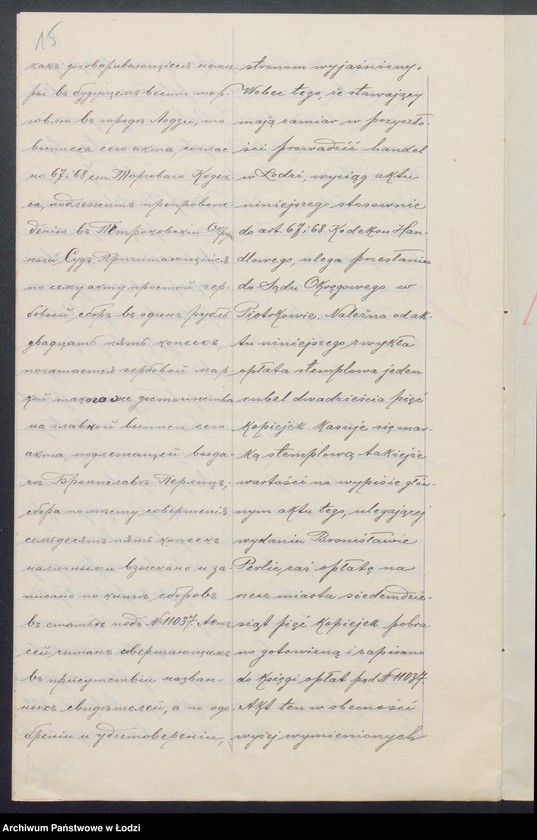 15
какъ договаривающіеся намѣ-
ры въ будущемъ вести тор-
говлю въ городѣ Лодзи, то
выписка сего акта, соглас-
но 67 и 68 ст. Торговаго Кодек-
са, подлежитъ препровож-
денію въ Петроковскій Окруж-
ный Судъ. Причитающійся
по сему акту простой гер-
бовый сборъ въ одинъ рубль
двадцать пять копѣекъ,
погашается гербовой мар-
кой такого же достоинства
на главной выписи сего
акта, подлежащей выда-
чѣ Брониславѣ Перлицъ;
сбора по мѣсту совершенія
семьдесятъ пять копѣекъ
наличными взыскано и за-
писано по книгѣ сборовъ
въ статьѣ подъ № 11037. Актъ
сей читанъ совершающимъ
въ присутствіи назван-
ныхъ свидѣтелей, а по одо-
бреніи и удостовѣреніи,
stronom wyjaśniony.
Wobec tego, że stawający
mają zamiar, w przyszło-
ści prowadzić handel
w Łodzi, wyciąg aktu
niniejszego stosownie
do art. 67 i 68 Kodeksu Han-
dlowego, ulega przesłaniu
do Sądu Okręgowego w
Piotrkowie. Należna od ak-
tu niniejszego zwykła
opłata stemplowa jeden
rubel dwadzieścia pięć
kopiejek kasuje się mar-
ką stemplową takiejże
wartości na wypisie głów-
nym aktu tego, ulegającej
wydaniu Bronisławie
Perlic, zaś opłatę na
rzecz miasta siedemdzie-
siąt pięć kopiejek pobra-
no gotowizną i zapisano
do księgi opłat pod № 11037.
Akt ten w obecności
wyżej wymienionych
Archiwum Państwowe w Łodzi